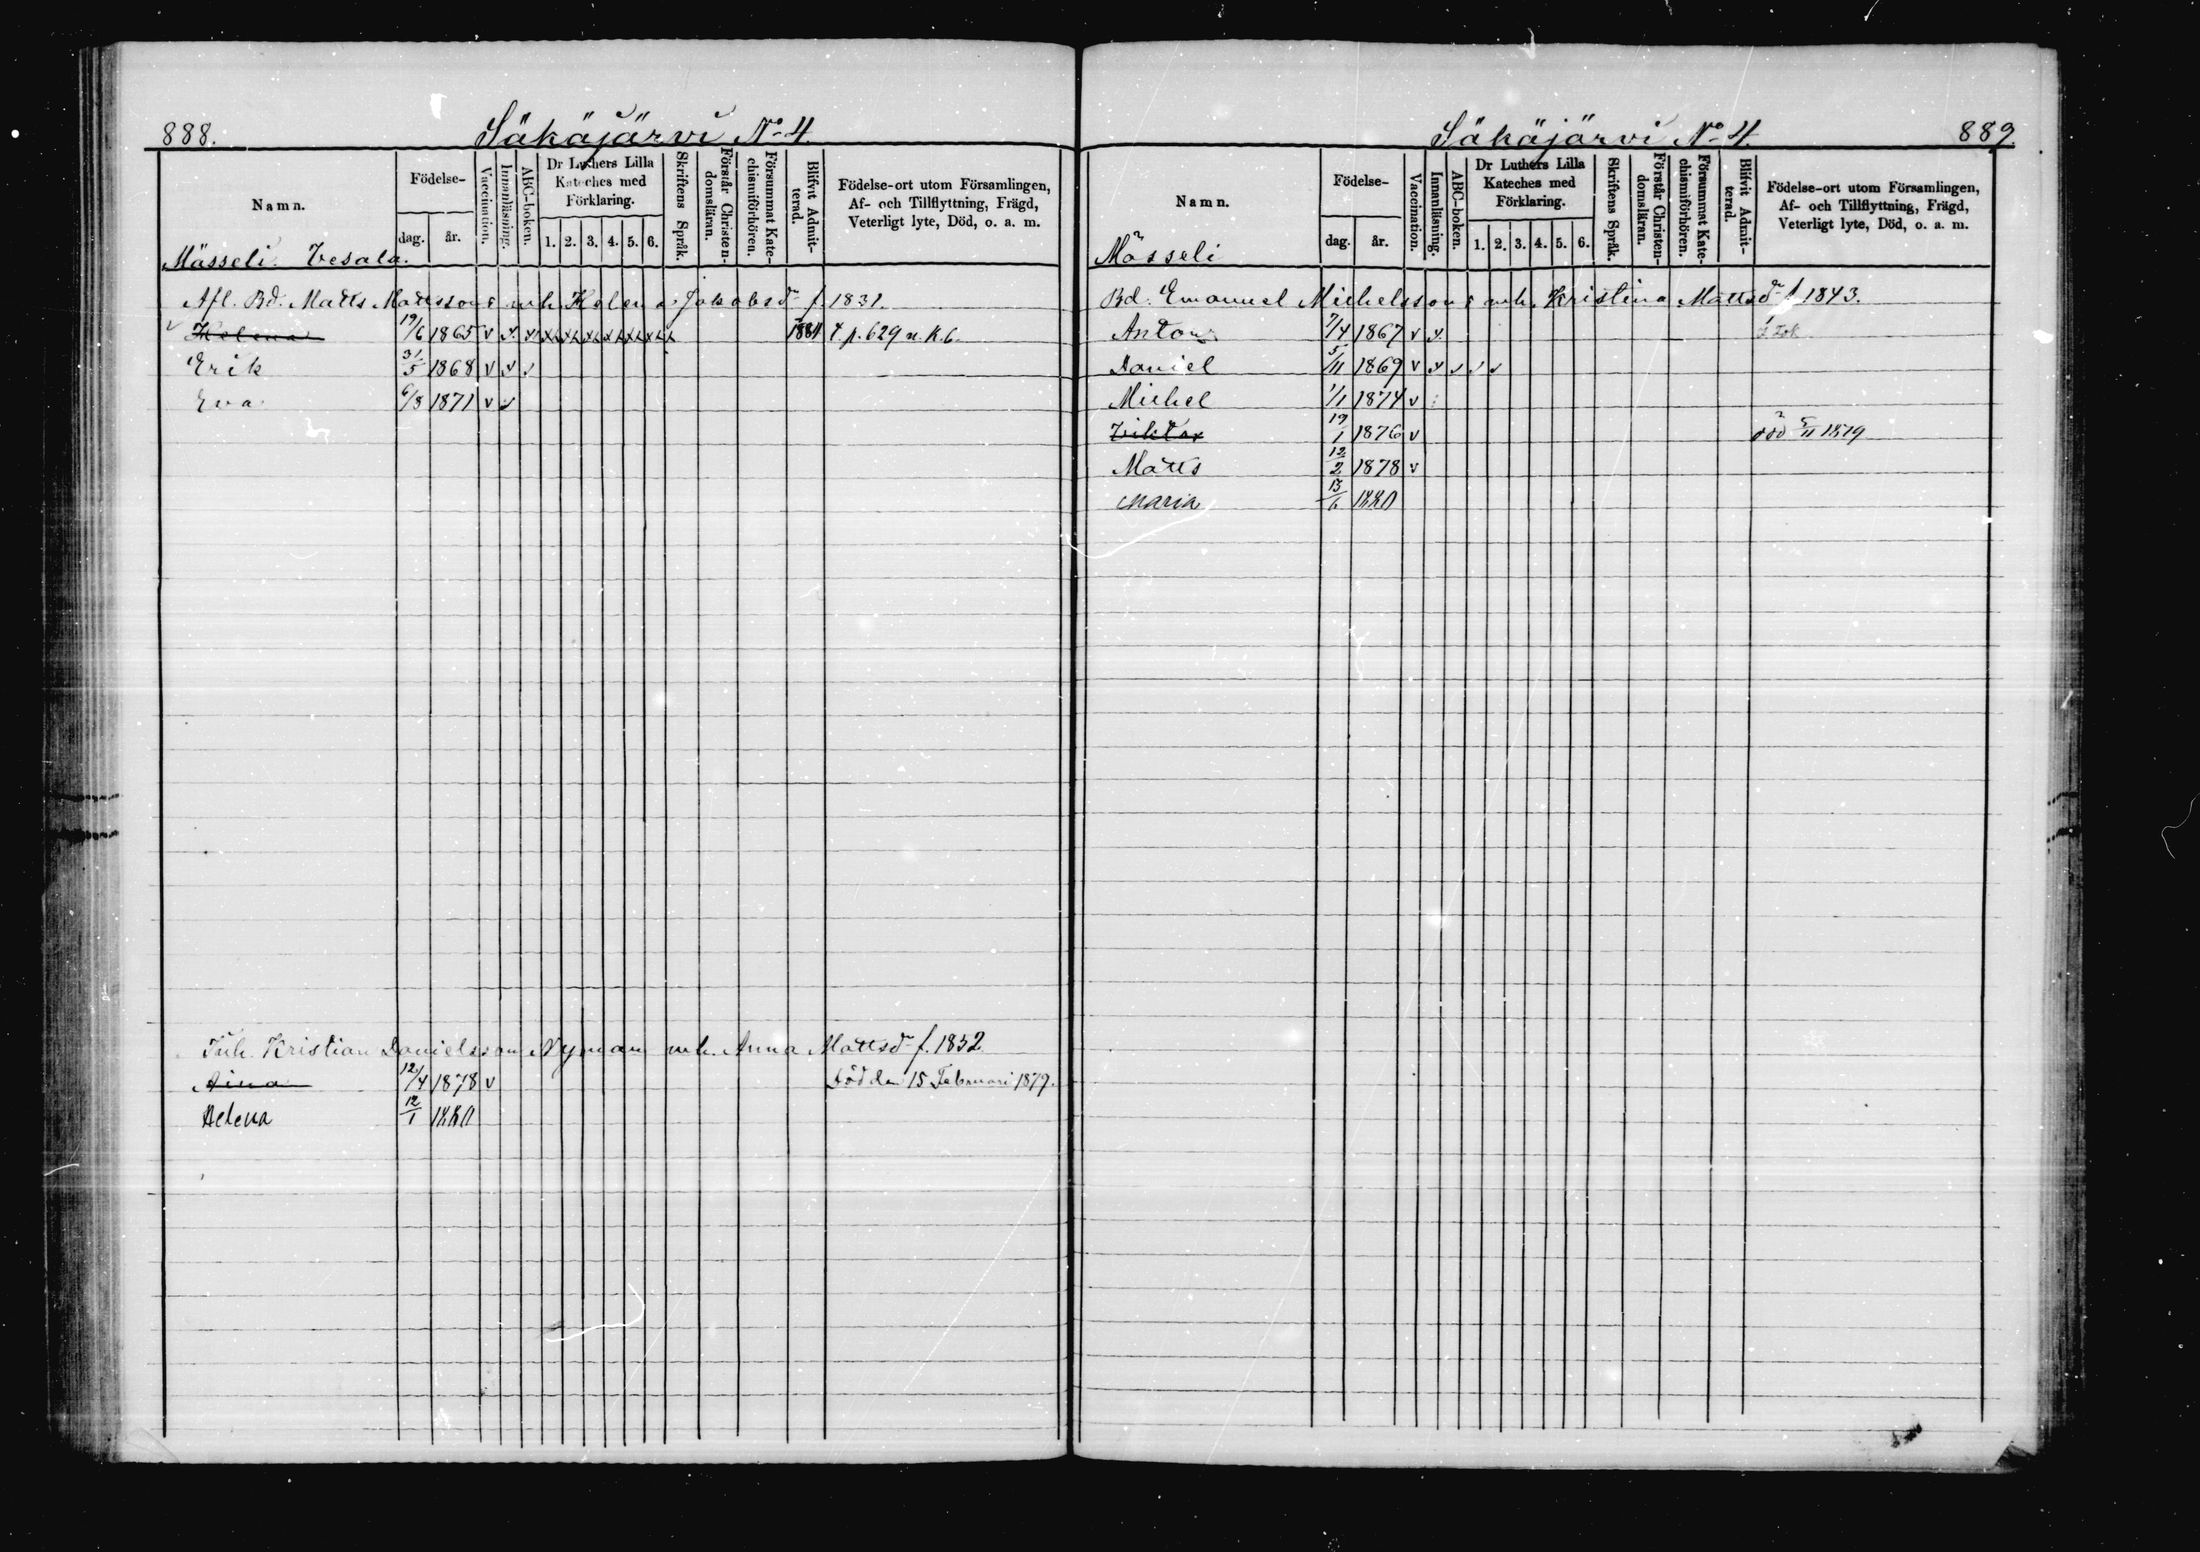 888.
Säkäjärvi No 4.
Namn.
Födelse-
dag.
år.
Vaccination.
Innanläsning.
ABC-boken.
Dr Luthers Lilla
Kateches med
Förklaring.
1. 2. 3. 4. 5. 6.
Skriftens Språk.
Förstår Christen-
domsläran.
Försummat Kate-
chismiförhören.
Blifvit Admit-
terad.
Födelse-ort utom Församlingen,
Af- och Tillflyttning, Frägd,
Veterligt lyte, Död, o. a. m.
Mässeli Vesala.
Afl. Bd. Matts Mattssons enk. Helena Jakobsdr f. 1831.
Helena 19/6 1865 v 1881 p. 629 n. K. b.
Erik 31/5 1868 v
Eva 6/8 1871 v
Inh. Kristian Danielsson Nyman enh. Anna Mattsdr f. 1832
Aina 12/4 1878 v Död den 15 Februari 1879.
Helena 12/1 1880
Säkäjärvi No 4.
889.
Namn.
Födelse-
dag.
år.
Vaccination.
Innanläsning.
ABC-boken.
Dr Luthers Lilla
Kateches med
Förklaring.
1. 2. 3. 4. 5. 6.
Skriftens Språk.
Förstår Christen-
domsläran.
Försummat Kate-
chismiförhören.
Blifvit Admit-
terad.
Födelse-ort utom Församlingen,
Af- och Tillflyttning, Frägd,
Veterligt lyte, Död, o. a. m.
Mässeli
Bd. Emanuel Michelssons enh. Kristina Mattsdr f. 1843.
Anton 7/4 1867 v
Daniel 5/11 1869 v
Michel 1/1 1874 v
Viktor 19/1 1876 v död 5/11 1879
Matts 12/2 1878 v
Maria 13/6 1880